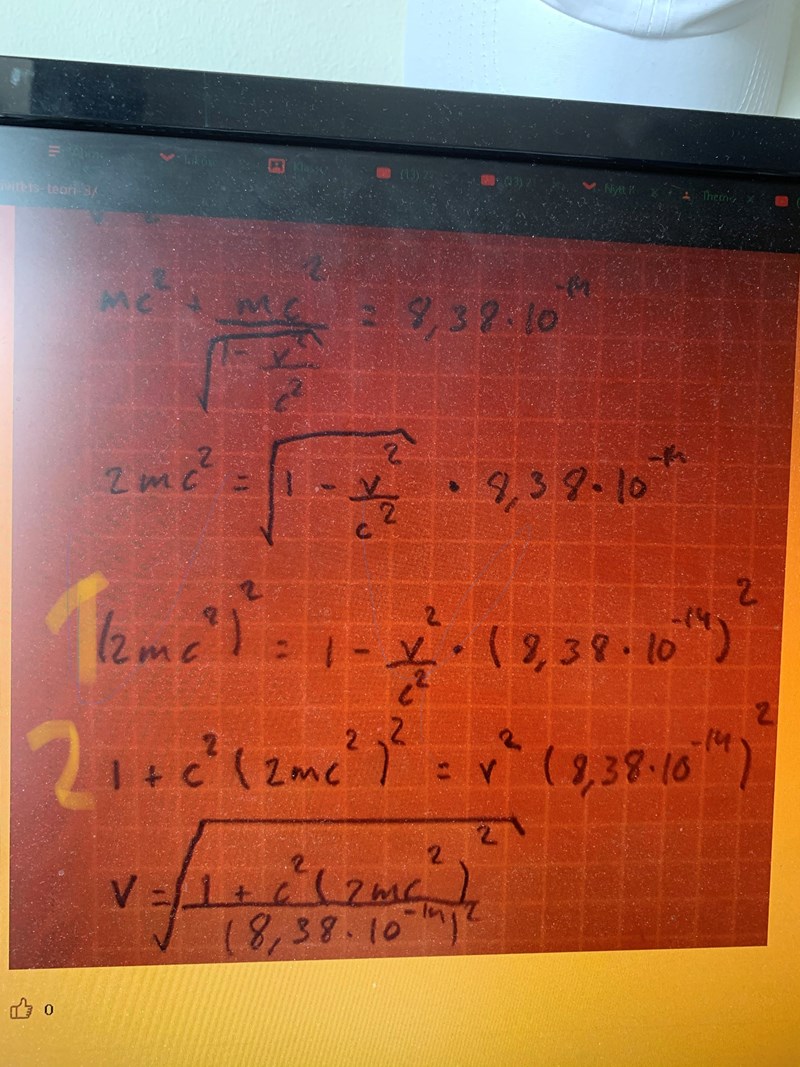 Nytt i
mc² + mc²/√(1 - v²/c²) = 8,38·10⁻¹⁴
2mc² = √(1 - v²/c²) · 8,38·10⁻¹⁴
1 (2mc²)² = 1 - v²/c² · (8,38·10⁻¹⁴)²
2 1 + c²(2mc²)² = v²(8,38·10⁻¹⁴)²
v = √(1 + c²(2mc²)²/(8,38·10⁻¹⁴)²)
0